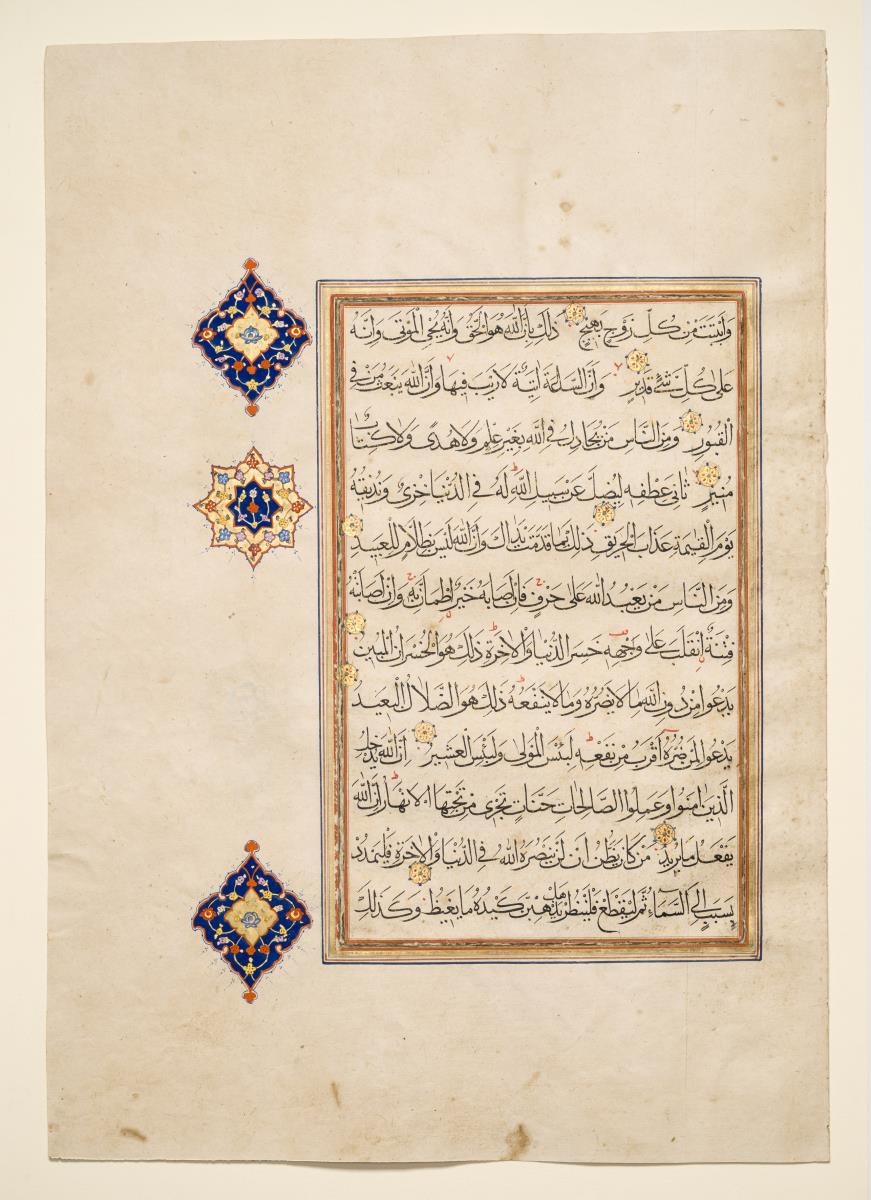 وَاَنْبَتَتْ مِنْ كُلِّ زَوْجٍ بَهِيجٍ ذٰلِكَ بِاَنَّ اللّٰهَ هُوَ الْحَقُّ وَاَنَّهُ يُحْيِ الْمَوْتٰى وَاَنَّهُ
عَلٰى كُلِّ شَيْءٍ قَدِيرٌ وَاَنَّ السَّاعَةَ اٰتِيَةٌ لَا رَيْبَ فِيهَا وَاَنَّ اللّٰهَ يَبْعَثُ مَنْ فِي
الْقُبُورِ وَمِنَ النَّاسِ مَنْ يُجَادِلُ فِي اللّٰهِ بِغَيْرِ عِلْمٍ وَلَا هُدًى وَلَا كِتَابٍ
مُنِيرٍ ثَانِيَ عِطْفِهِ لِيُضِلَّ عَنْ سَبِيلِ اللّٰهِ لَهُ فِي الدُّنْيَا خِزْيٌ وَنُذِيقُهُ
يَوْمَ الْقِيٰمَةِ عَذَابَ الْحَرِيقِ ذٰلِكَ بِمَا قَدَّمَتْ يَدَاكَ وَاَنَّ اللّٰهَ لَيْسَ بِظَلَّامٍ لِلْعَبِيدِ
وَمِنَ النَّاسِ مَنْ يَعْبُدُ اللّٰهَ عَلٰى حَرْفٍ فَاِنْ اَصَابَهُ خَيْرٌ اطْمَاَنَّ بِهِ وَاِنْ اَصَابَتْهُ
فِتْنَةٌ انْقَلَبَ عَلٰى وَجْهِهِ خَسِرَ الدُّنْيَا وَالْاٰخِرَةَ ذٰلِكَ هُوَ الْخُسْرَانُ الْمُبِينُ
يَدْعُوا مِنْ دُونِ اللّٰهِ مَا لَا يَضُرُّهُ وَمَا لَا يَنْفَعُهُ ذٰلِكَ هُوَ الضَّلَالُ الْبَعِيدُ
يَدْعُوا لَمَنْ ضَرُّهُ اَقْرَبُ مِنْ نَفْعِهِ لَبِئْسَ الْمَوْلٰى وَلَبِئْسَ الْعَشِيرُ اِنَّ اللّٰهَ يُدْخِلُ
الَّذِينَ اٰمَنُوا وَعَمِلُوا الصَّالِحَاتِ جَنَّاتٍ تَجْرِي مِنْ تَحْتِهَا الْاَنْهَارُ اِنَّ اللّٰهَ
يَفْعَلُ مَا يُرِيدُ مَنْ كَانَ يَظُنُّ اَنْ لَنْ يَنْصُرَهُ اللّٰهُ فِي الدُّنْيَا وَالْاٰخِرَةِ فَلْيَمْدُدْ
بِسَبَبٍ اِلَى السَّمَاءِ ثُمَّ لْيَقْطَعْ فَلْيَنْظُرْ هَلْ يُذْهِبَنَّ كَيْدُهُ مَا يَغِيظُ وَكَذٰلِكَ